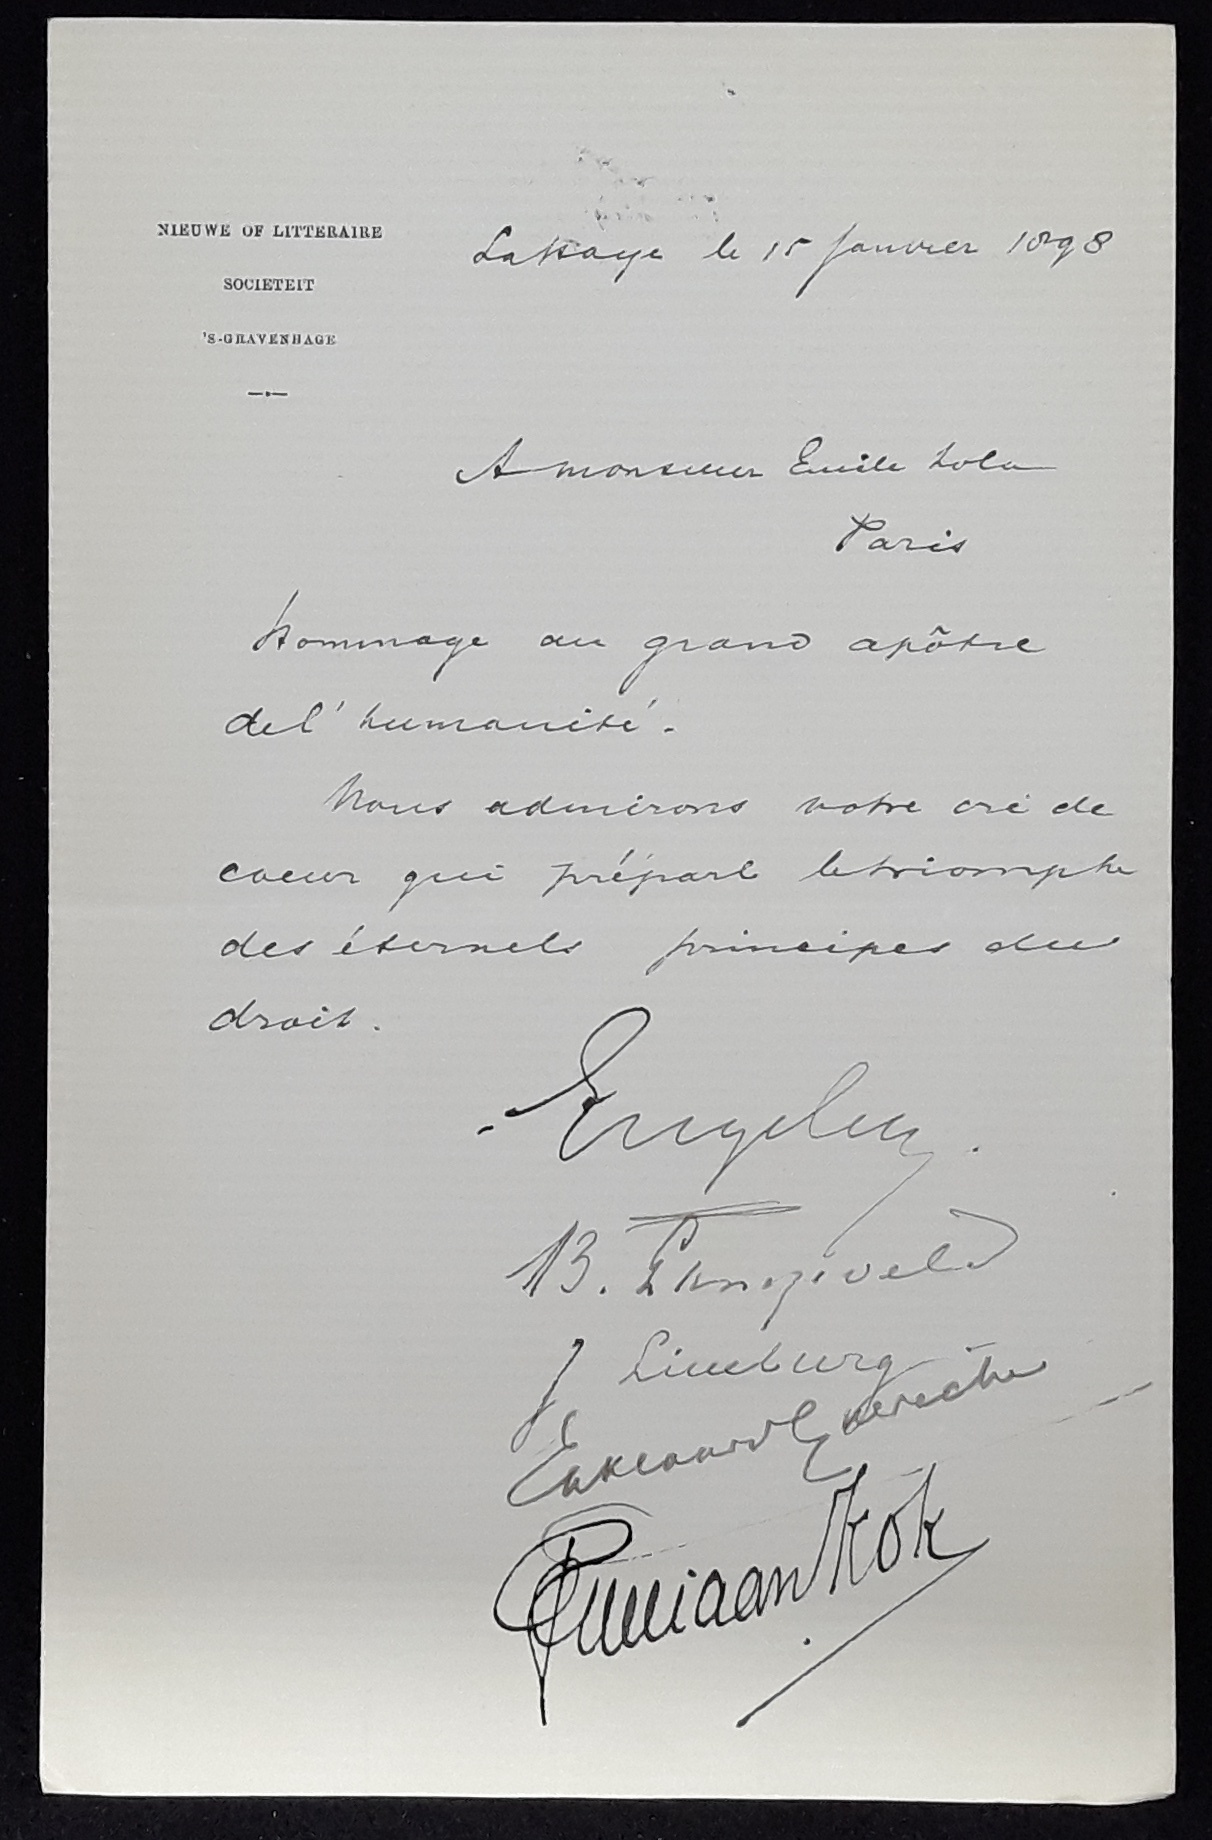 NIEUWE OF LITTERAIRE
SOCIETEIT
'S-GRAVENHAGE
La Haye le 15 Janvier 1898
A monsieur Emile Zola
Paris
Hommage au grand apôtre
de l'humanité.
Nous admirons votre cri de
coeur qui prépare le triomphe
des éternels principes du
droit.
Engelen.
B.
J Limburg
Kok